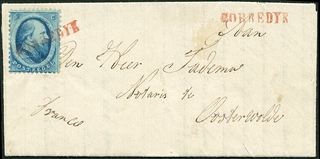 GORREDYK
GORREDYK
Aan
Den Heer Tadema
Notaris te
Oosterwolde
Franco